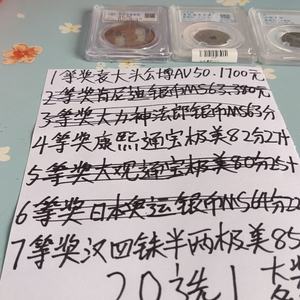 1等奖袁大头公博AV50.1700元
2等奖肯尼迪银币MS63.380元
3等奖大力神法郎银币MS63分
4等奖康熙通宝极美82分2什
5等奖大观通宝极美80分25什
6等奖日本奥运银币MS64分22
7等奖汉四铢半两极美85
20选1大奖